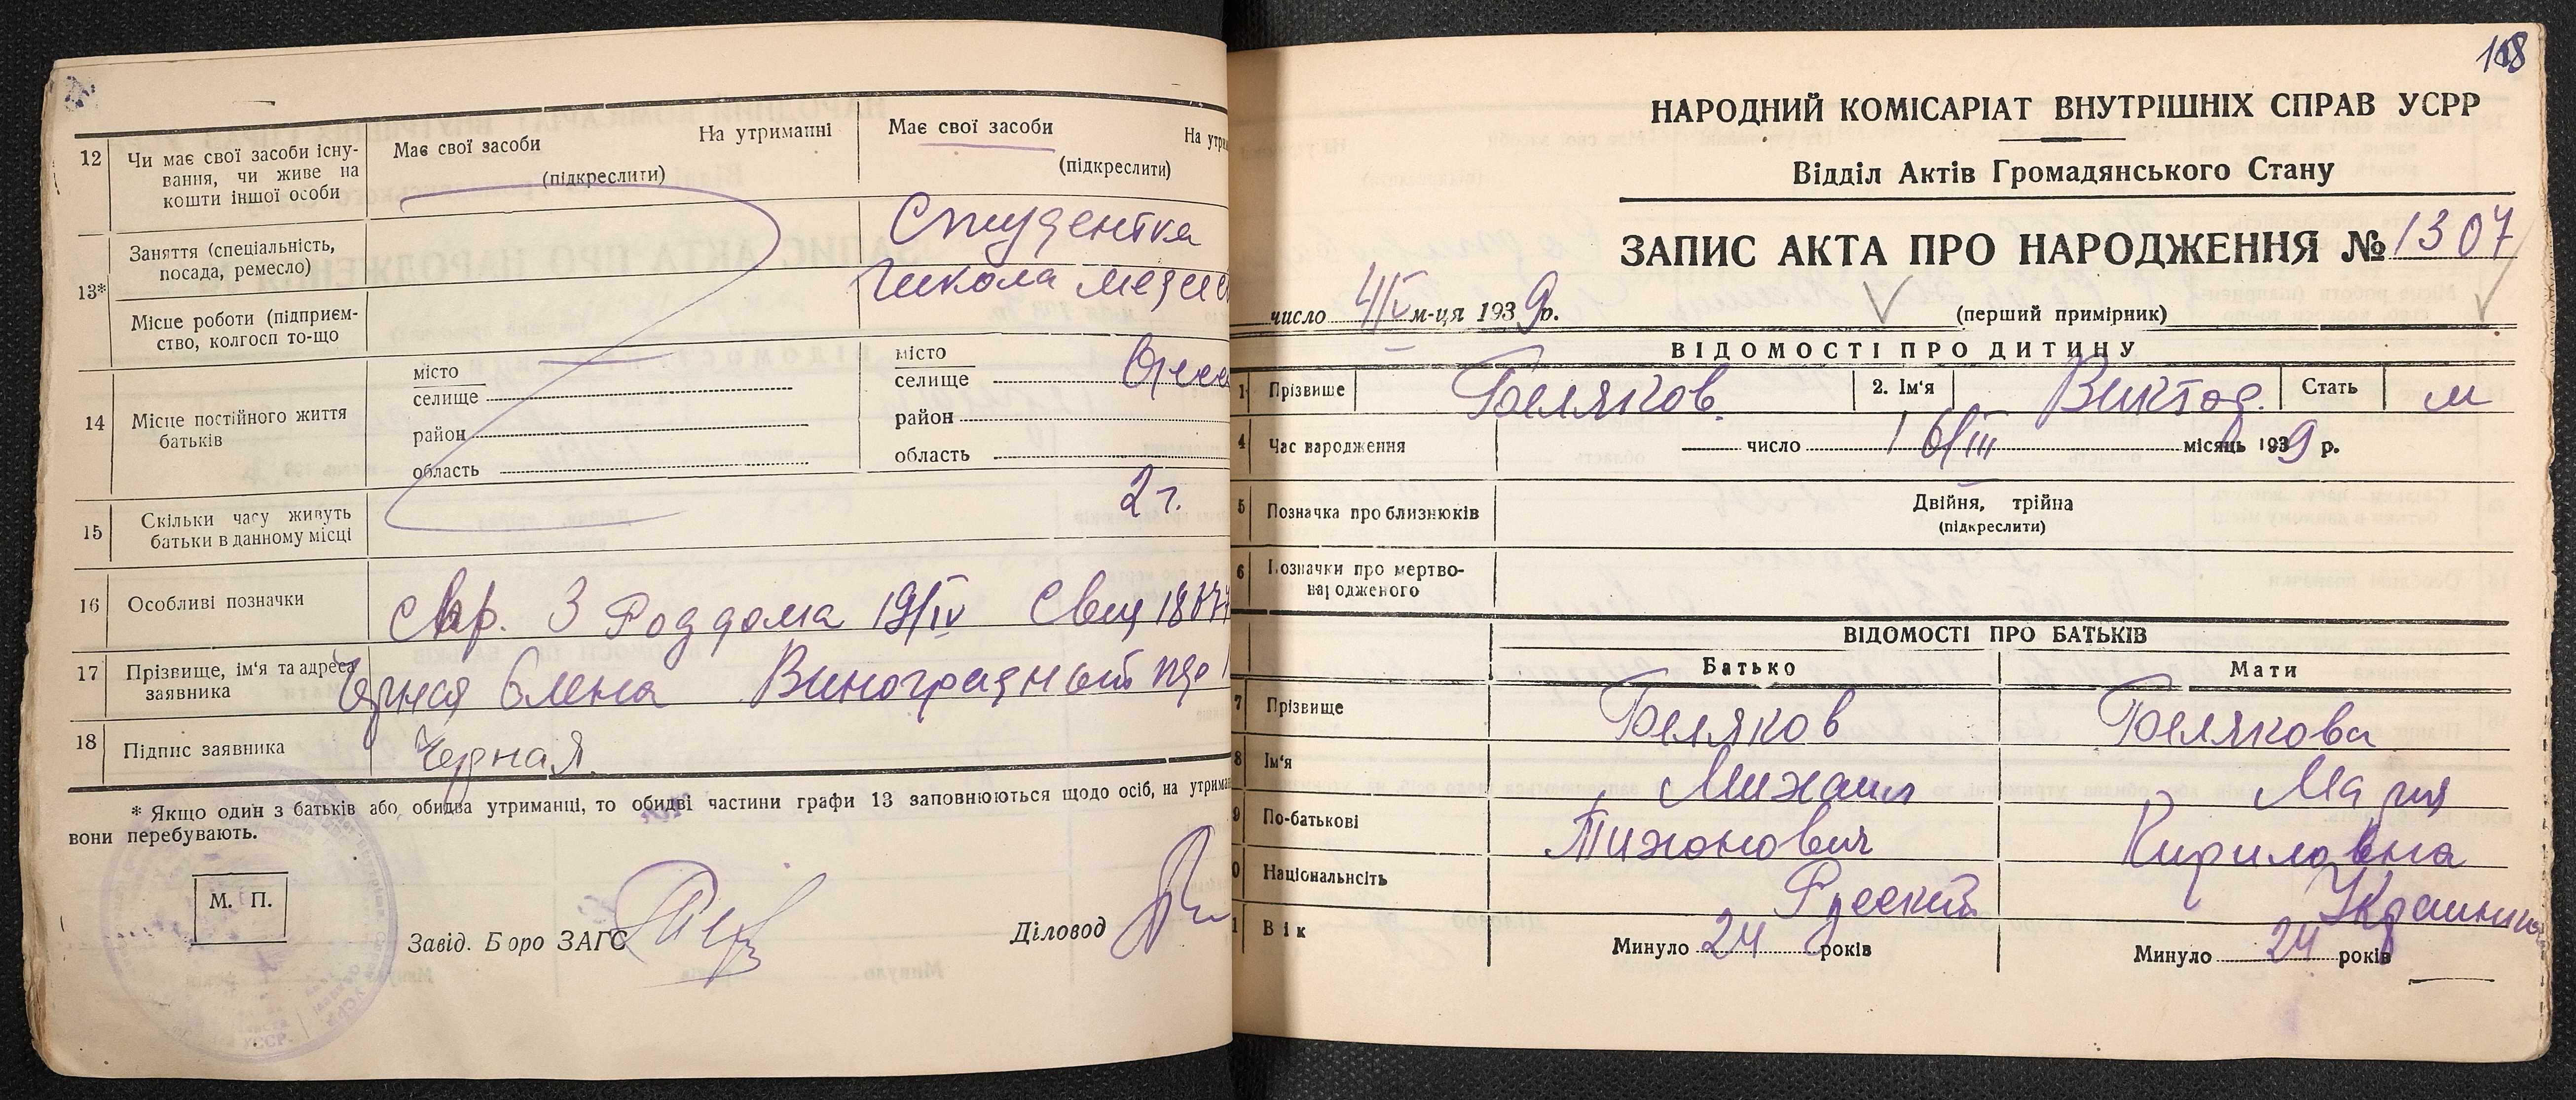 12 Чи має свої засоби існу-
вання, чи живе на
кошти іншої особи
Має свої засоби На утриманні
(підкреслити)
Має свої засоби На утри
(підкреслити)
13*
Заняття (спеціальність,
посада, ремесло)
Студентка
Місце роботи (підприєм-
ство, колгосп то-що
школа
14 Місце постійного життя
батьків
місто
селище
район
область
місто
селище
район
область
15 Скільки часу живуть
батьки в данному місці
2 г.
16 Особливі позначки
Спр. 3 Роддома 19/IV
17 Прізвище, ім'я та адреса
заявника
Черная Елена Виноградный
18 Підпис заявника
Черная
* Якщо один з батьків або обидва утриманці, то обидві частини графи 13 заповнюються щодо осіб, на утриман
вони перебувають.
М. П.
Завід. Бюро ЗАГС
Діловод
НАРОДНИЙ КОМІСАРІАТ ВНУТРІШНІХ СПРАВ УСРР
Відділ Актів Громадянського Стану
ЗАПИС АКТА ПРО НАРОДЖЕННЯ № 1307
число 4/V м-ця 1939 р.
(перший примірник)
ВІДОМОСТІ ПРО ДИТИНУ
1 Прізвище Беляков 2. Ім'я Виктор. Стать м
4 Час народження число 16/III місяць 1939 р.
5 Позначка про близнюків Двійня, трійна
(підкреслити)
6 Позначки про мертво-
народженого
ВІДОМОСТІ ПРО БАТЬКІВ
Батько Мати
7 Прізвище Беляков Белякова
8 Ім'я Михаил Мария
9 По-батькові Тихонович Кириловна
0 Національнсіть Русский Украинка
1 Вік Минуло 24 років Минуло 24 років